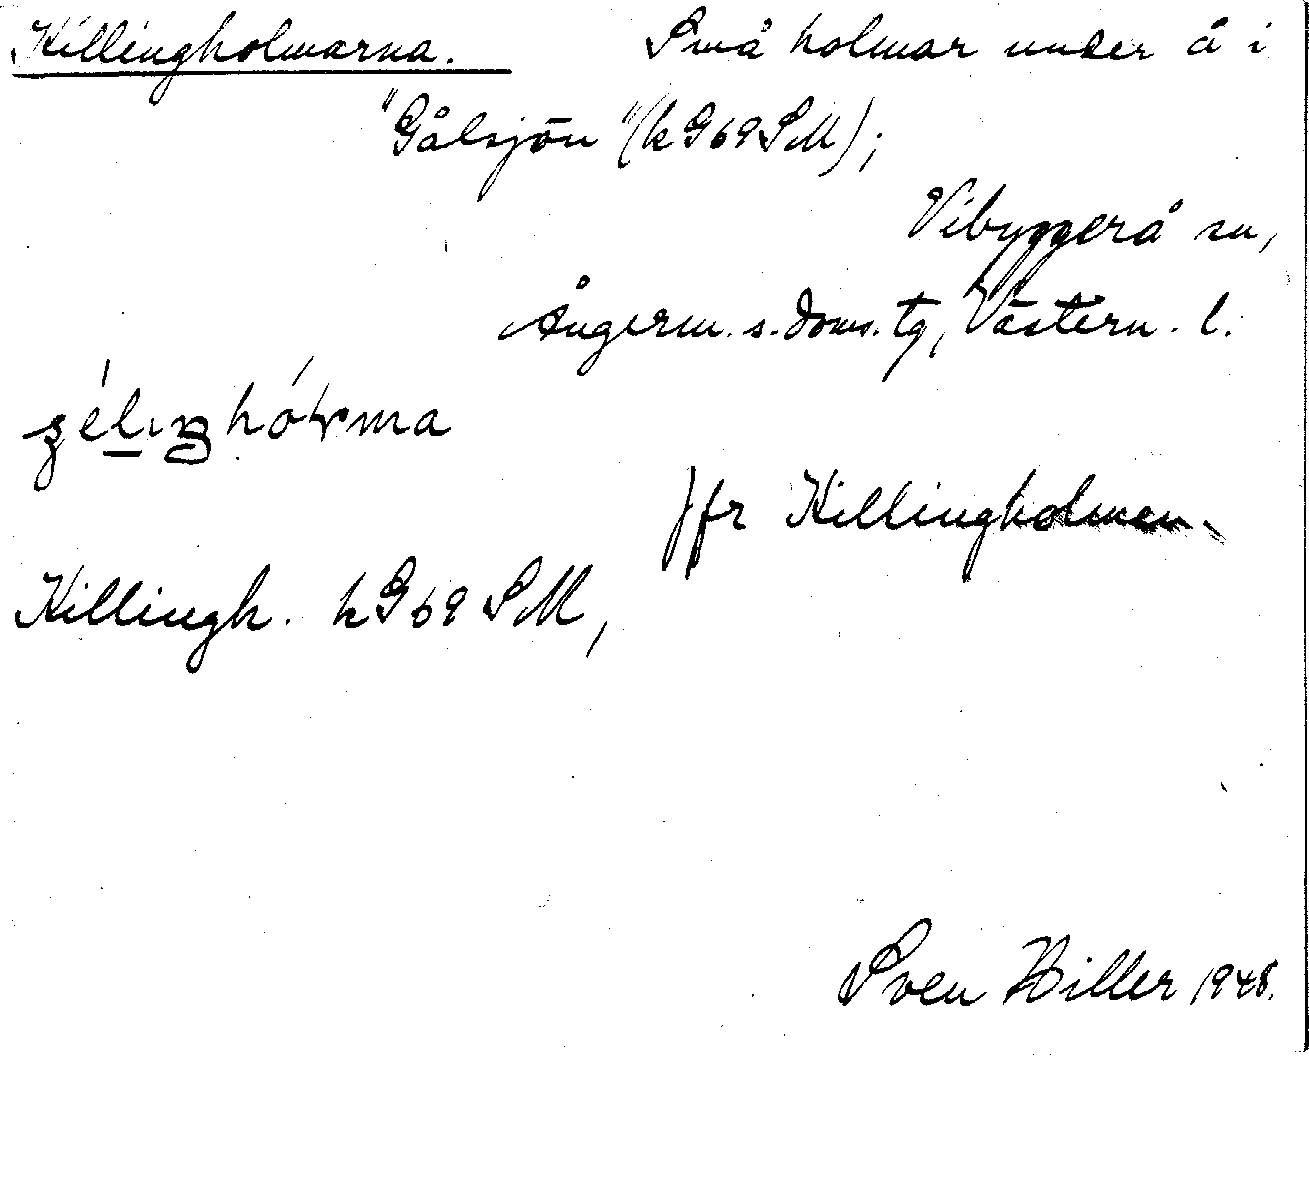 Killingholmarna. Små holmar under å i
"Gålsjön" (k G69 SM);
Vibyggerå sn,
Ångerm. s. doms. tg, Västern. l.
hó
Jfr Killingholmen
Killingh. k G69 SM,
Sven Hiller 1948.